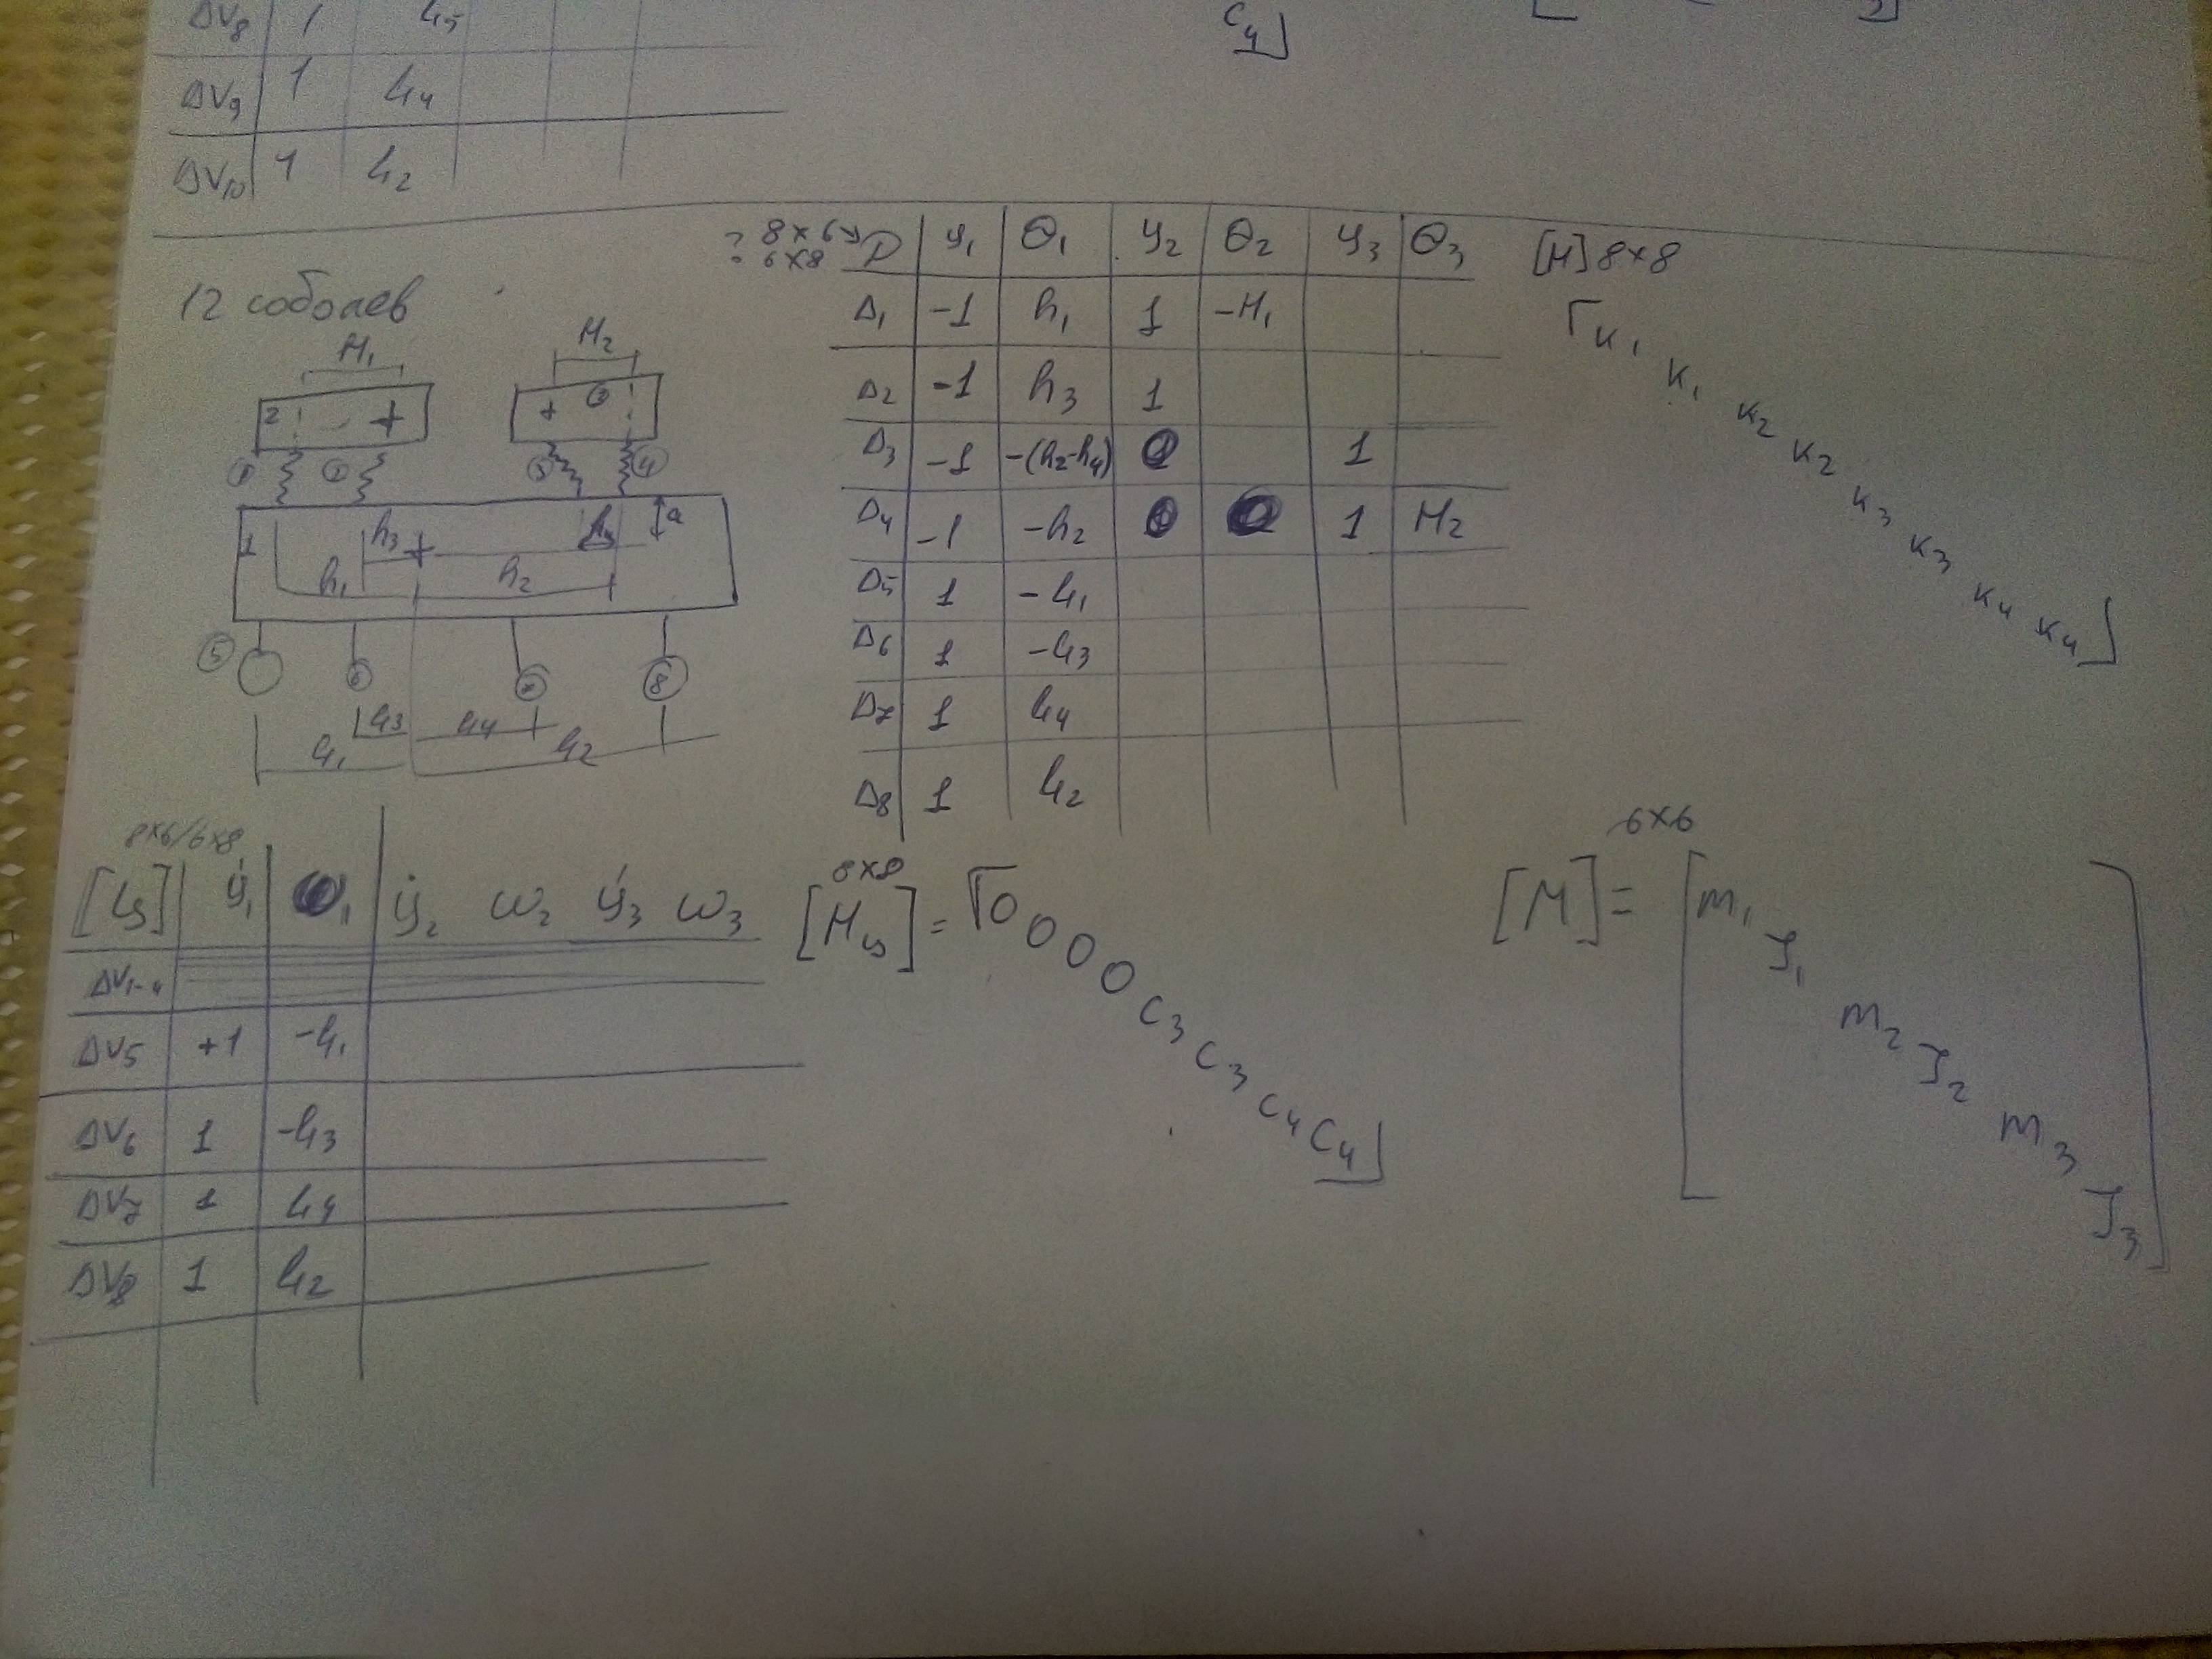 ΔV₈ 1 h₅
ΔV₉ 1 h₄
ΔV₁₀ 1 h₂
C₄
12 соболев
H₁ H₂
2 - + + 3
1 2 3 4
1 h₃ + a
h₁ h₂
5 6 7 8
ц₃ ц₄
ц₁ ц₂
? 8×6
? 6×8
D y₁ Θ₁ y₂ Θ₂ y₃ Θ₃
Δ₁ -1 h₁ 1 -H₁
Δ₂ -1 h₃ 1
Δ₃ -1 -(h₂-h₄) 1
Δ₄ -1 -h₂ 1 H₂
Δ₅ 1 -ц₁
Δ₆ 1 -ц₃
Δ₇ 1 ц₄
Δ₈ 1 ц₂
[H] 8×8
K₁ K₁ K₂ K₂ K₃ K₃ K₄ K₄
8×6/6×8
[ц] ẏ₁ ẏ₂ ω₂ ẏ₃ ω₃
ΔV₁₋₄
ΔV₅ +1 -ц₁
ΔV₆ 1 -ц₃
ΔV₇ 1 ц₄
ΔV₈ 1 ц₂
8×8
[Hц] = 0 0 0 0 C₃ C₃ C₄ C₄
6×6
[M] = m₁ J₁ m₂ J₂ m₃ J₃